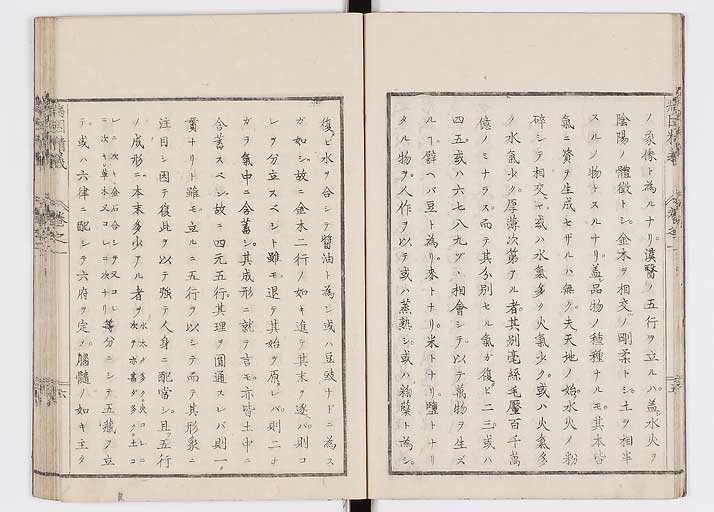 ノ象像ト為ルナリ。漢醫ノ五行ヲ立ルハ。蓋水火ヲ
陰陽ノ體徴トシ。金木ヲ相交ノ剛柔トシ。土ヲ相半
スルノ物トスルナリ。蓋品物ノ種種ナルモ。其本皆
氣ニ資テ生成セザルハ無ク。夫天地ノ始。水火ノ粉
碎シテ相交ヤ。或ハ水氣多ク火氣少ク。或ハ火氣多
ク水氣少ク。厚薄次第アル者。其別毫絲毛釐百千萬
億ノミナラズ。而テ其分別セル氣ガ復ビ二三。或ハ
四五。或ハ六七八九ヅヽ相會シテ。以テ萬物ヲ生ズ
ルヿ。辟ヘバ豆ト為リ。麥トナリ。米トナリ。鹽トナリ
タル物ヲ。人作ヲ以テ或ハ蒸熟シ。或ハ釀ト為シ。
復ビ水ヲ合シテ醬油ト為シ或ハ豆豉ナドニ為ス
ガ如シ。故ニ金木二行ノ如キ進テ其末ヲ逐バ。則コ
レヲ分立スベシト雖モ。退テ其始ヲ原レバ。則二ナ
ガラ氣中ニ含蓄シ。其成形ニ就テ言モ。亦皆土中ニ
含蓄スベシ。故ニ四元五行。其理ヲ圓通スレバ則一
貫ナリト雖モ。立ルニ五行ヲ以シテ而テ其形象ニ
注目シ因テ復此ヲ以テ強テ人身ニ配當シ。且五行
ノ成形ニ。本末多少アル者ヲ
等分ニシテ五藏ヲ立
テ。或ハ六律ニ配シテ六府ヲ定ク。腦髓ノ如キ主タ